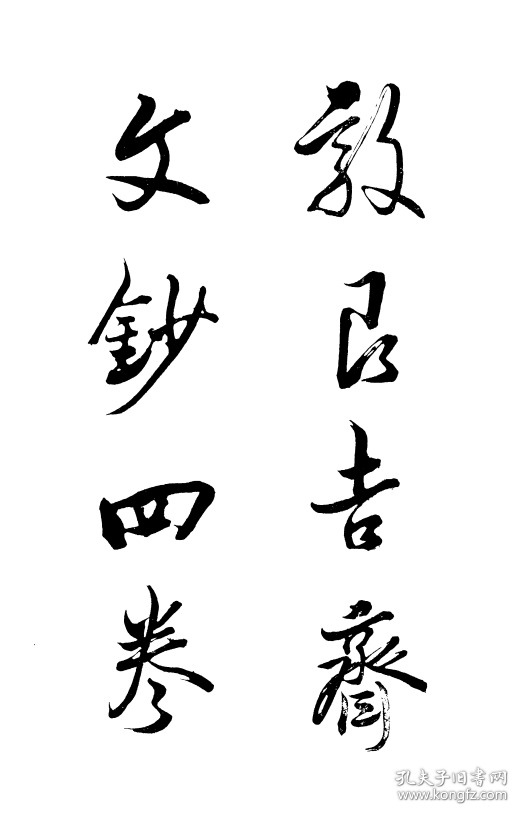 敦艮吉齋
文鈔四卷
孔夫子旧书网
www.kongfz.com